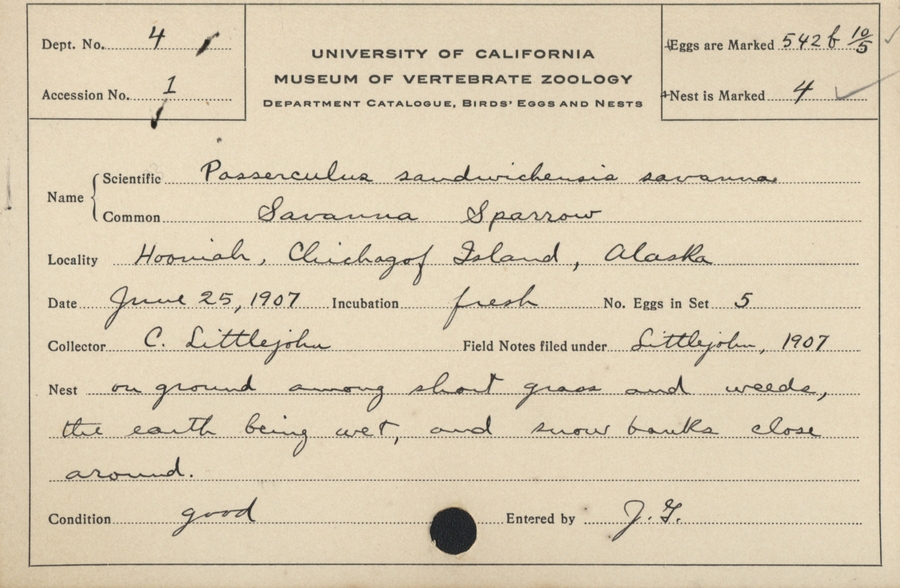 Dept. No. 4
Accession No. 1
UNIVERSITY OF CALIFORNIA
MUSEUM OF VERTEBRATE ZOOLOGY
DEPARTMENT CATALOGUE, BIRDS' EGGS AND NESTS
Eggs are Marked 542b 10/5
Nest is Marked 4
Name
Scientific Passerculus sandwichensis savanna
Common Savanna Sparrow
Locality Hooniah, Chichagof Island, Alaska
Date June 25, 1907 Incubation fresh No. Eggs in Set 5
Collector C. Littlejohn Field Notes filed under Littlejohn, 1907
Nest on ground among short grass and weeds,
the earth being wet, and snow banks close
around.
Condition good Entered by J. G.